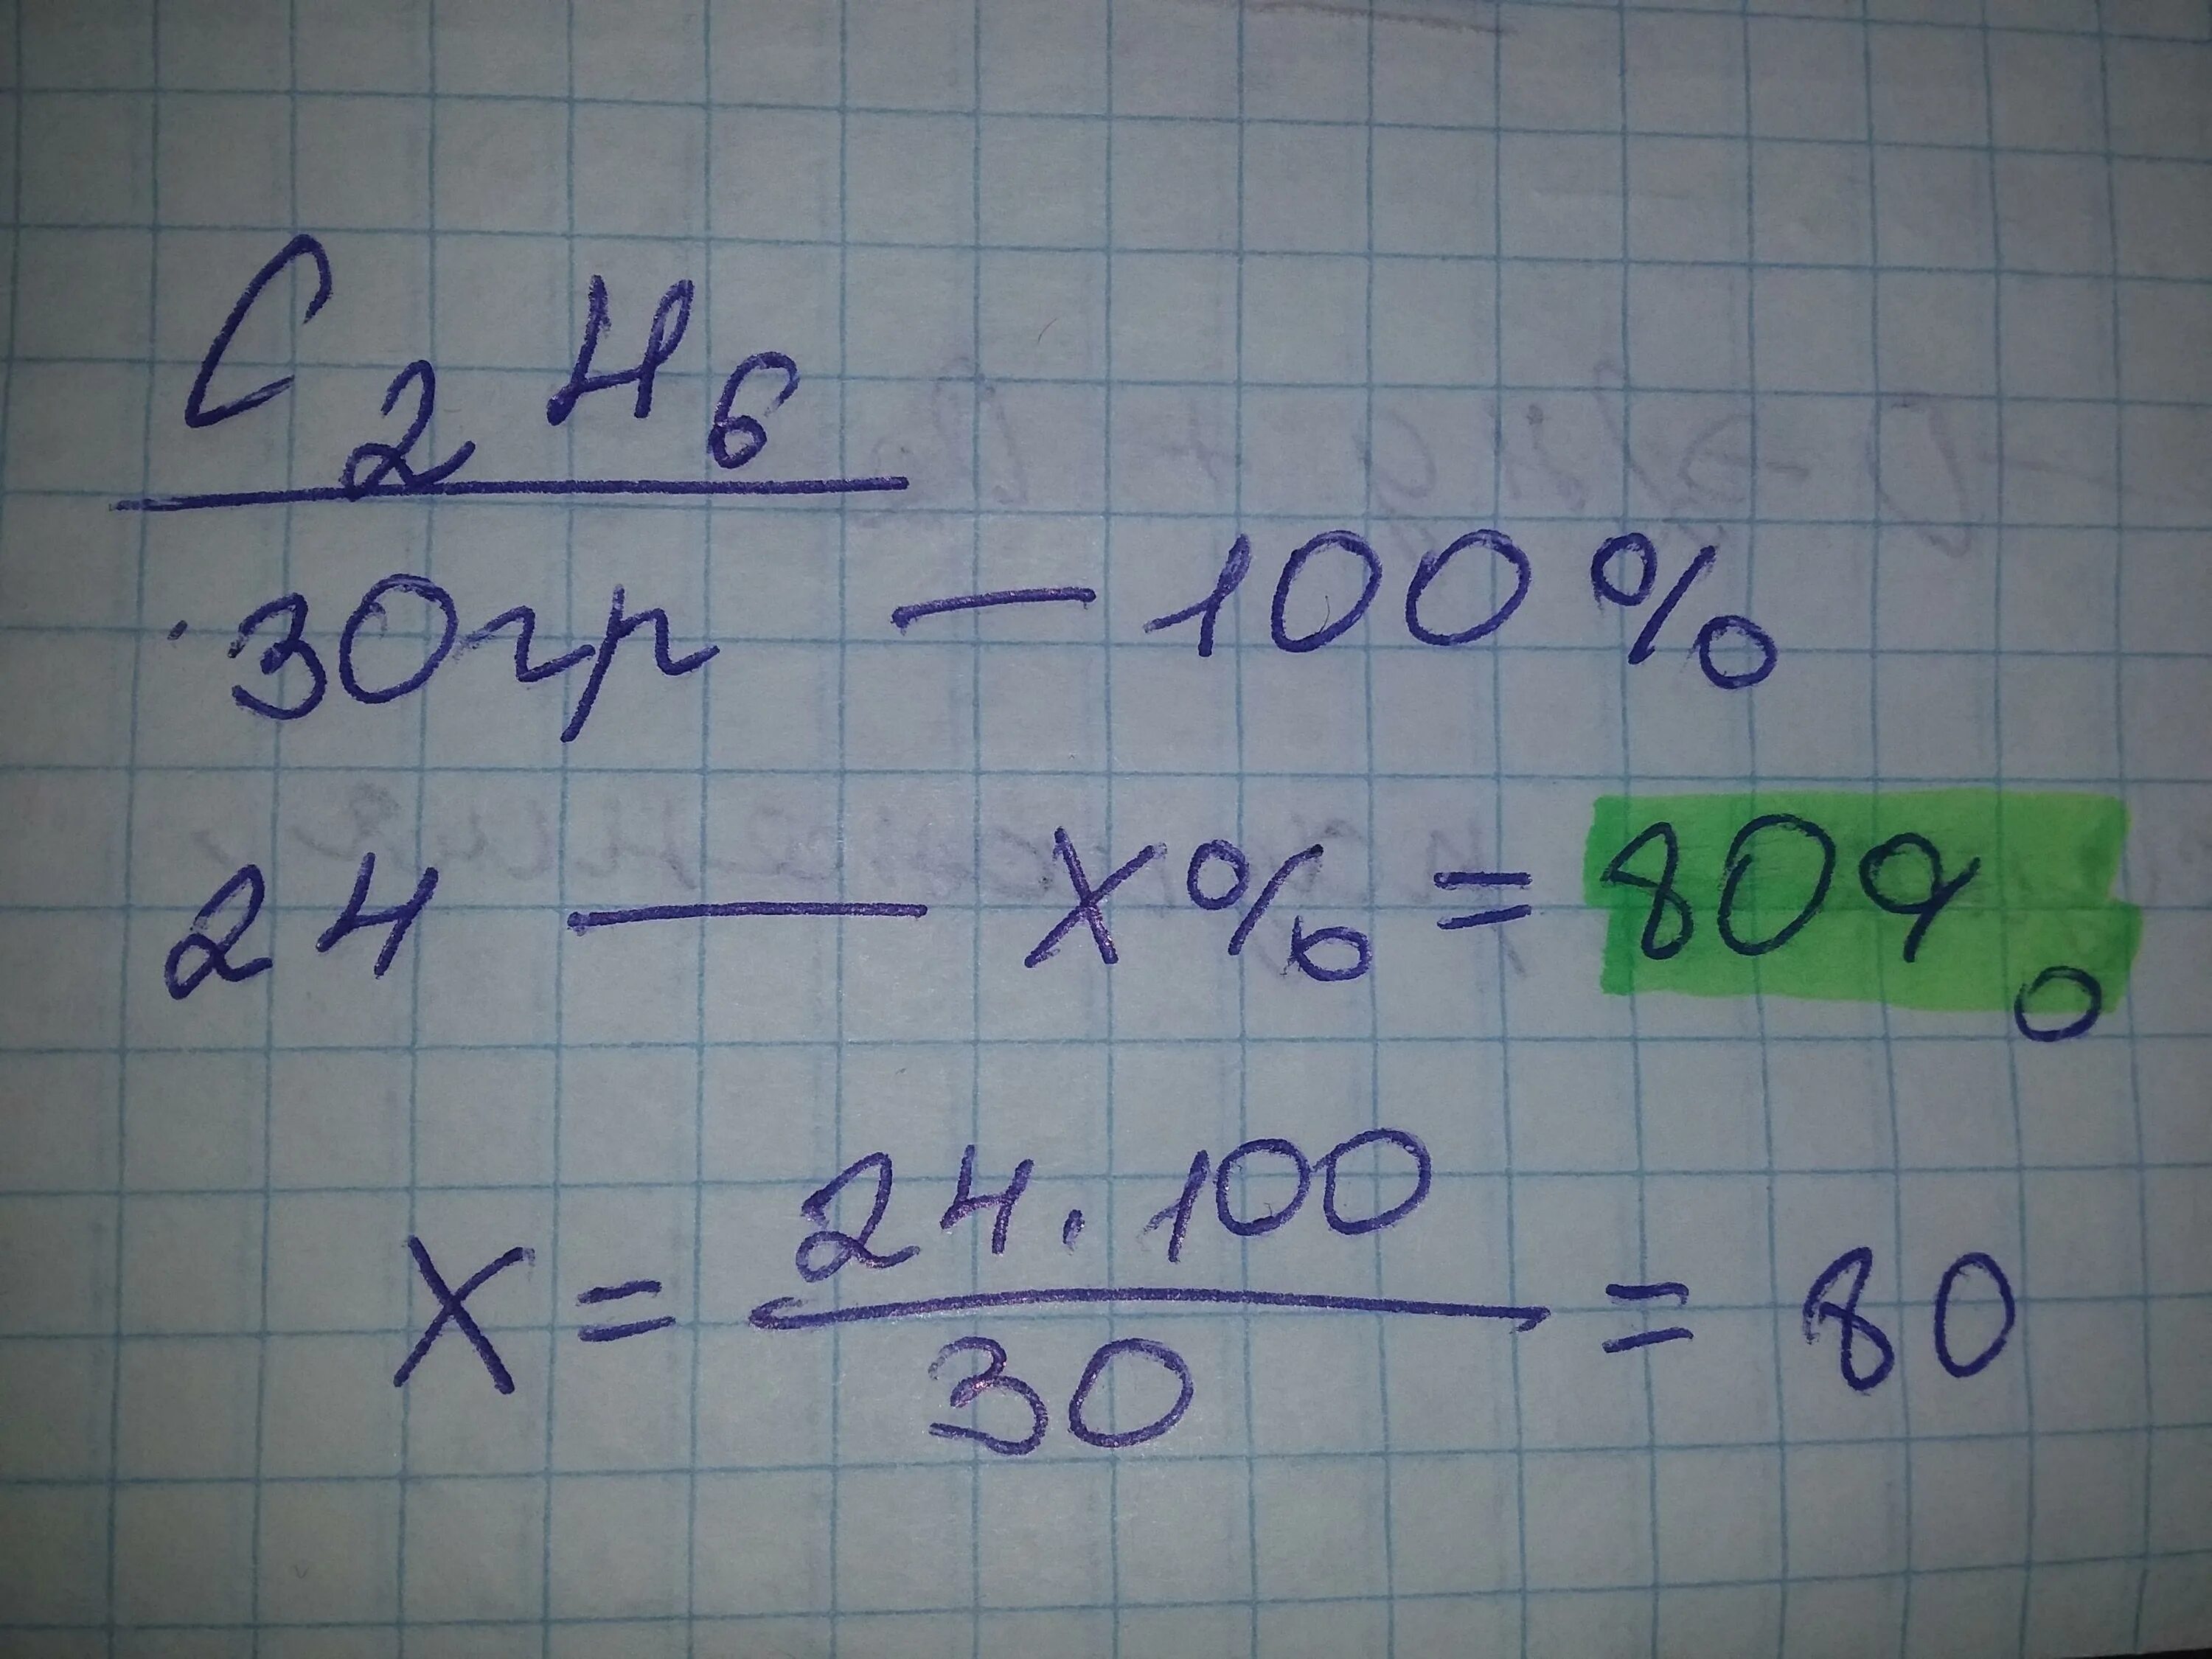 C₂H₆
30гр — 100%
24 — x% = 80%
x = 24·100/30 = 80